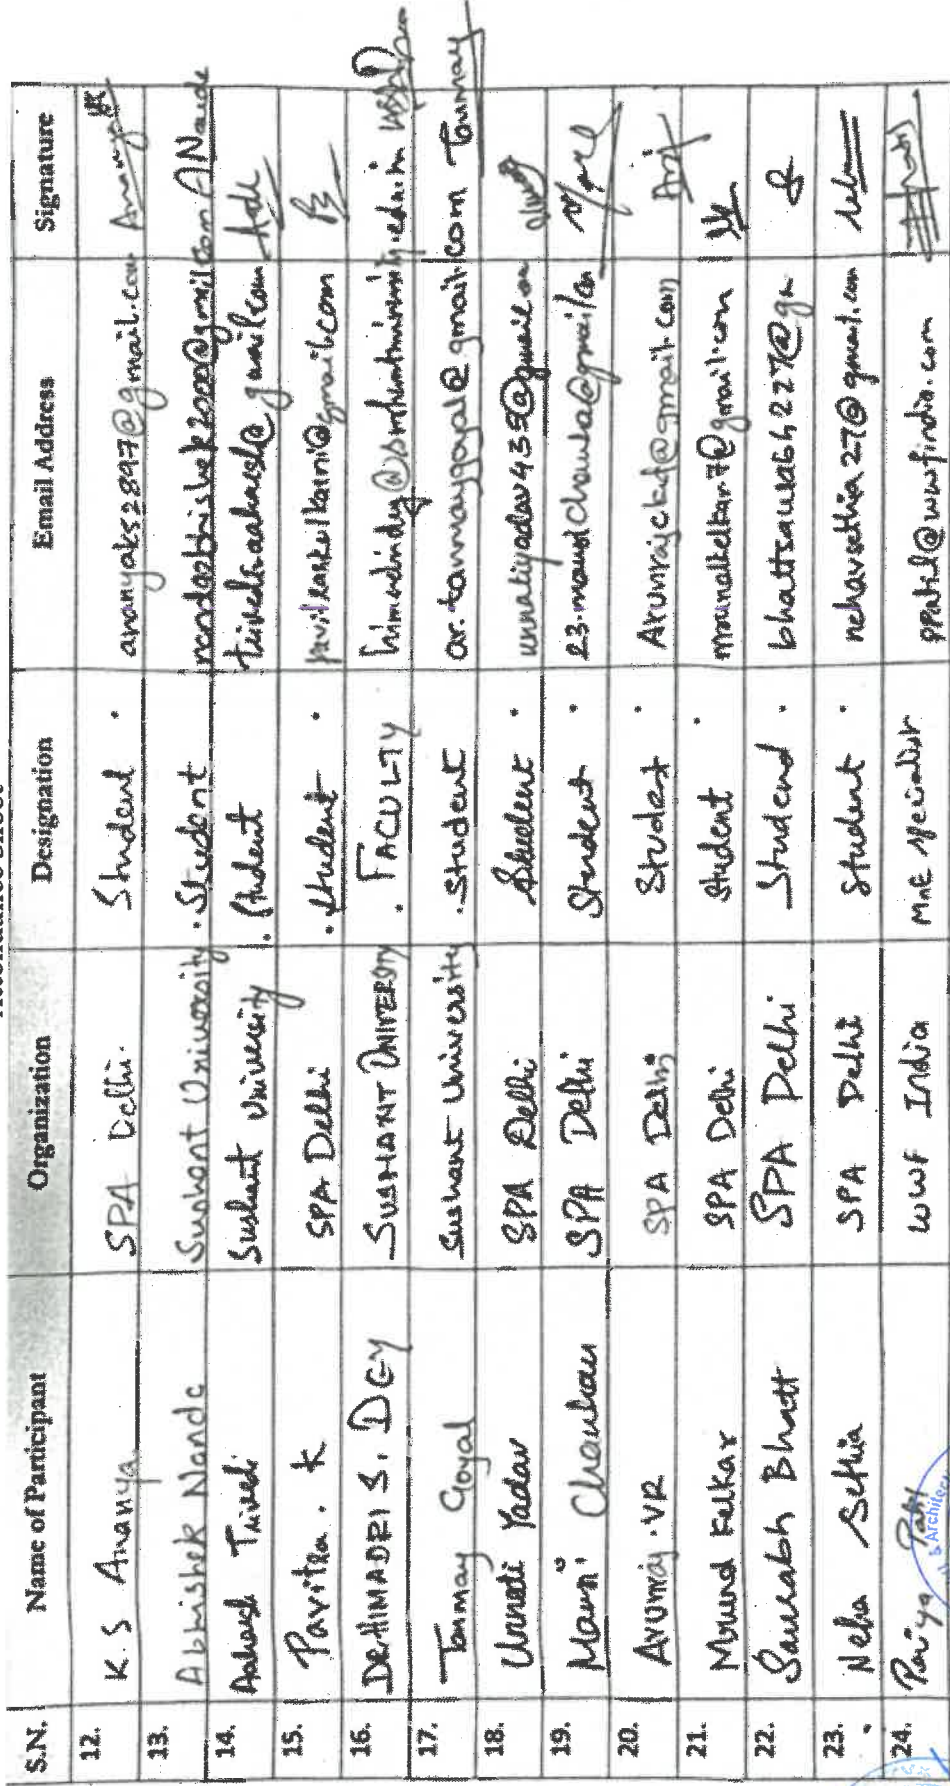 Attendance Sheet
S.N. Name of Participant Organization Designation Email Address Signature
12. K.S Ananya SPA Delhi. Student . ananyaks2897@gmail.com
13. Abhishek Nanda Sushant University . Student nandaabhishek2000@gmail.com ANanda
14. Aakash Trivedi Sushant University . Student trivediaakash@gmail.com
15. Pavitra . K SPA Delhi . Student .
16. DR. HIMADRI S. DEY SUSHANT UNIVERSITY . FACULTY
17. Tanmay Goyal Sushant University . Student ar.tanmaygoyal@gmail.com Tanmay
18. Unnati Yadav SPA Delhi Student . unnatiyadav435@gmail.com
19. Mansi Chauhan SPA Delhi Student .
20. Arunraj .VR SPA Delhi Student .
21. Mrunal Kelkar SPA Delhi Student . mrunalkelkar7@gmail.com
22. Saurabh Bhatt SPA Delhi Student . bhattsaurabh227@gm
23. Neha Sethia SPA Delhi Student . nehavsethia27@gmail.com
24. WWF India MnE specialist @wwfindia.com
& Architec